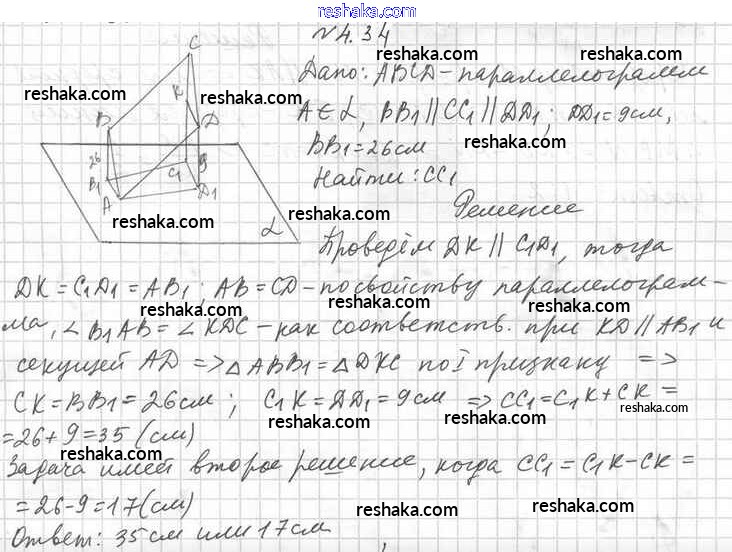 www.reshaka.com
N 4.34
Дано: ABCD - параллелограмм
A ∈ α, BB1 || CC1 || DD1; DD1 = 9см,
BB1 = 26см
Найти: CC1
Решение
Проведём DK || C1D1, тогда
DK = C1D1 = AB1; AB = CD - по свойству параллелограм-
ма, ∠B1AB = ∠KDC - как соответств. при KD || AB1 и
секущей AD => △ABB1 = △DKC по I признаку =>
CK = BB1 = 26см; C1K = DD1 = 9см => CC1 = C1K + CK =
= 26 + 9 = 35 (см)
Задача имеет второе решение, когда CC1 = C1K - CK =
= 26 - 9 = 17 (см)
Ответ: 35 см или 17 см
C
K
B
D
26
B1
C1
9
A
D1
α
reshaka.com
reshaka.com
reshaka.com
reshaka.com
reshaka.com
reshaka.com
reshaka.com
reshaka.com
reshaka.com
reshaka.com
reshaka.com
reshaka.com
reshaka.com
reshaka.com
reshaka.com
reshaka.com